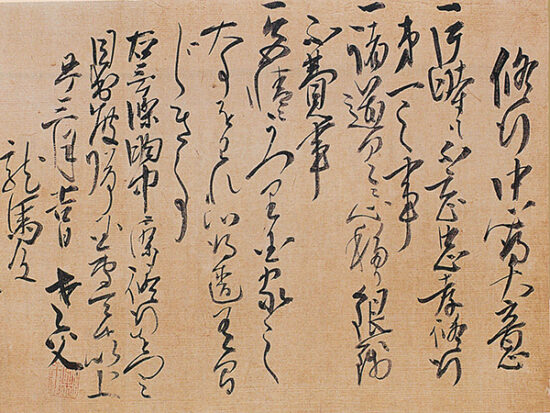 修行中心得大意
一片時も不忘忠孝修行
第一之事
一諸道具ニ心移り銀銭
不費事
一色情ニうつり国家之
大事をわすれ心得違有間
じき事
右三ケ條胸中ニ染修行をつミ
目出度帰国専一ニ候以上
丑ノ三月吉日 老父
龍馬殿